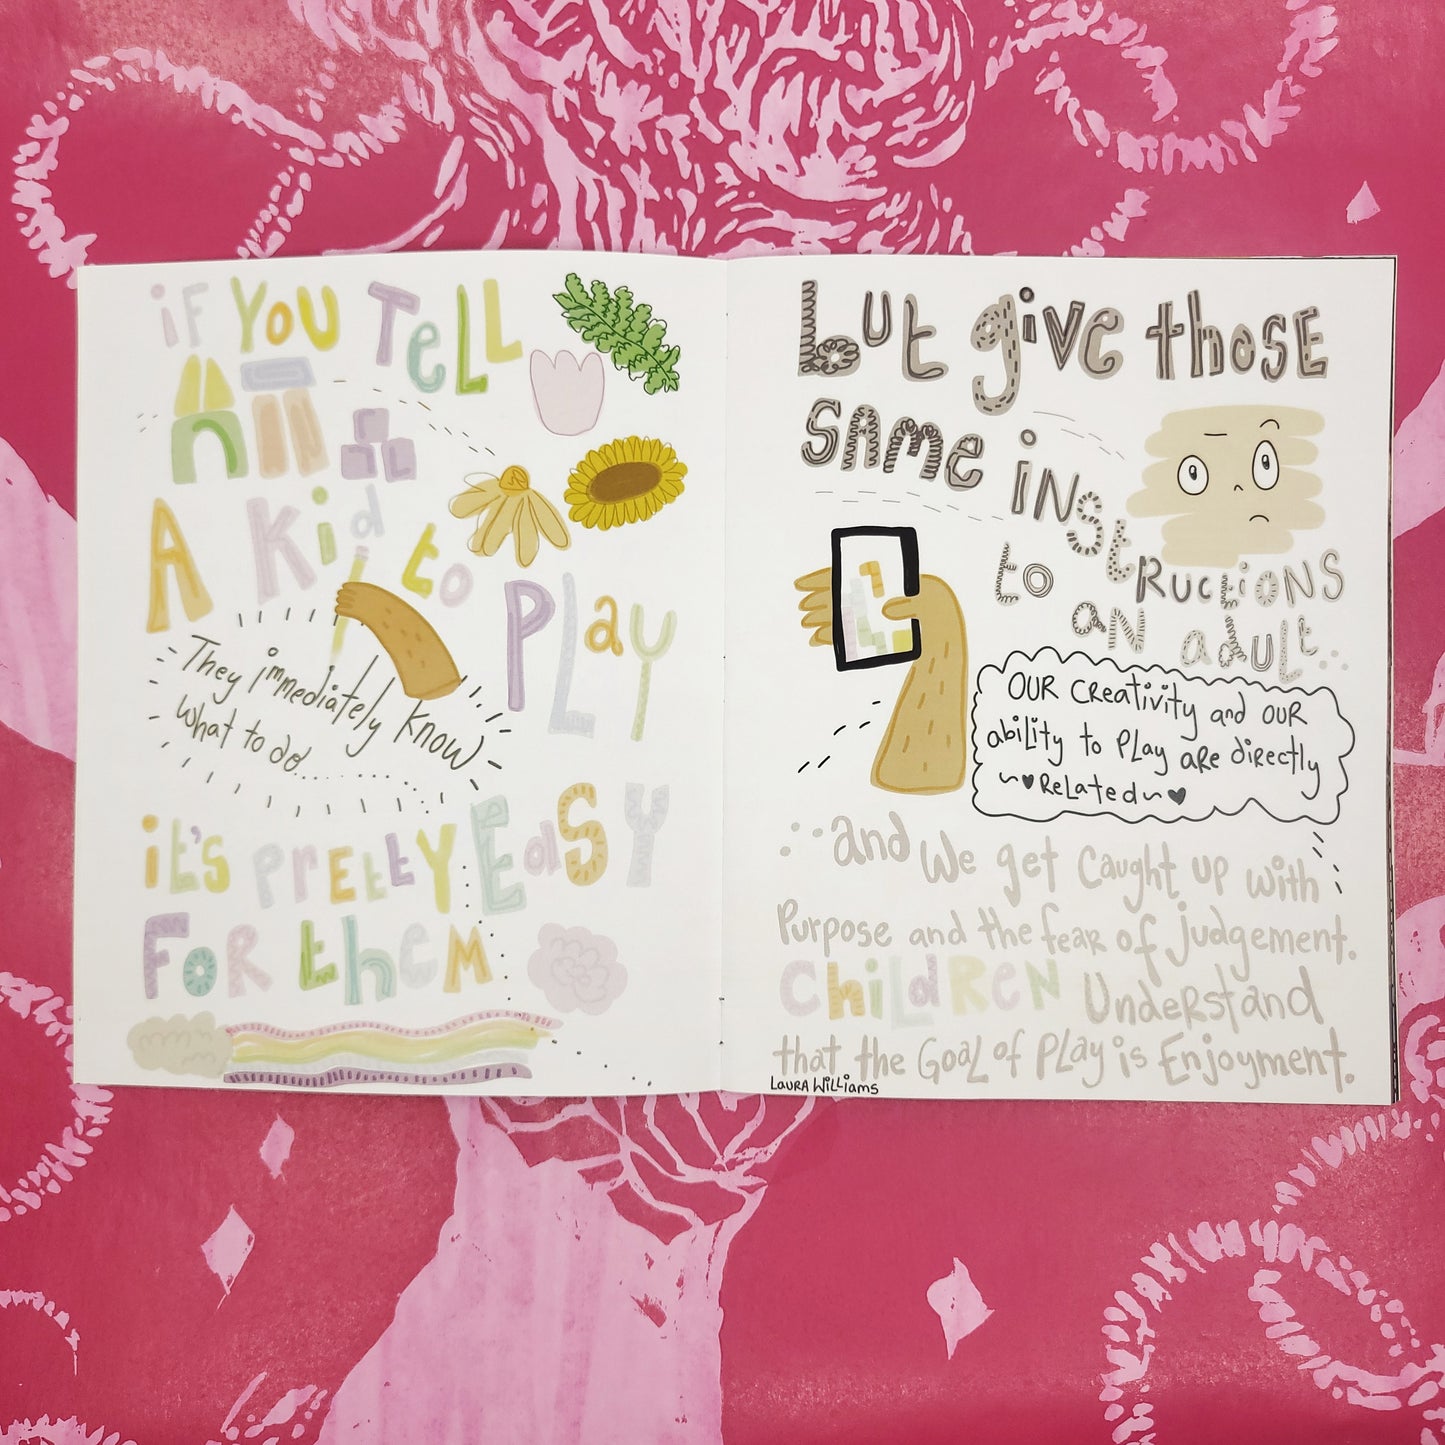 iF YOU TeLL
A Kid to
PLay
They immediately know
what to do...
it's PrEttY EasY
FOR them
but give thoSE
SAme inStRuctiONS
to aN adult...
OUR CReativity and OUR
ability to PLay aRe diRectly
~♥ReLated~♥
...and We get Caught up with
Purpose and the feaR of judgement.
ChiLdReN UndeRstand
that the GoaL of PLay is Enjoyment.
LauRa WiLLiams